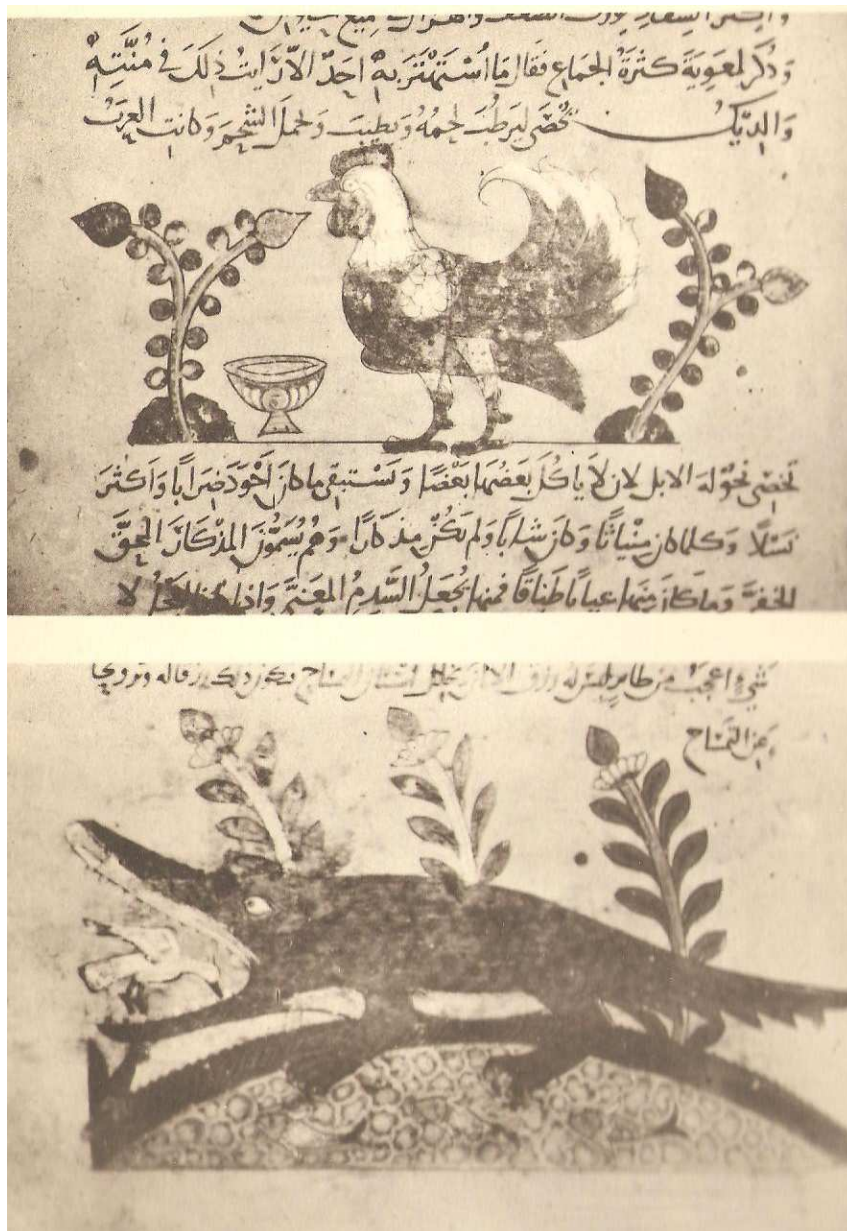 وذكر لمعوية كثرة الجماع فقال ما استهتر به احد الا رايت ذلك في منته
والديك يخصى ليرطب لحمه ويطيب ولحمل الشحم وكانت العرب
تخصى فحولة الابل لان لا ياكل بعضها بعضا وتستبقى ما كان اجود ضرابا واكثر
نسلا وكلما كان مئناثا وكان شابا ولم يكن مذكارا وهم يسمون المذكار المحق
الخفي وما كان منها عياياء طباقا فمنها يجعل السدم المعنى واذا الفحل لا
شيء اعجب من طاير رزق الا ان يخلل اسنان التمساح فيكون ذلك رزقا له وترويحا
عن التمساح